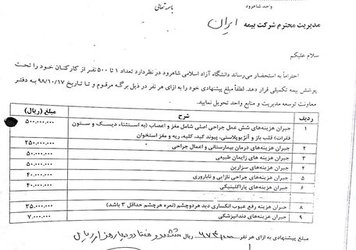 باسمه تعالی
واحد شاهرود
مدیریت محترم شرکت بیمه ایران
سلام علیکم
احتراما به استحضار می‌رساند دانشگاه آزاد اسلامی شاهرود در نظر دارد تعداد ۱ تا ۵۰۰ نفر از کارکنان خود را تحت
پوشش بیمه تکمیلی قرار دهد. لطفاً مبلغ پیشنهادی خود را به ازای هر نفر در ذیل برگه مرقوم و تا تاریخ ۹۸/۱۰/۱۷ به
معاونت توسعه مدیریت و منابع واحد تحویل نمایید.
ردیف شرح مبلغ (ریال)
۱ جبران هزینه‌های شش عمل جراحی اصلی شامل مغز و اعصاب (به استثناء دیسک و ستون فقرات) قلب باز و آنژیوپلاستی، پیوند کبد، کلیه، ریه و مغز استخوان ۵۰۰.۰۰۰.۰۰۰
جبران هزینه‌های درمان بیمارستانی و اعمال جراحی ۲۵۰.۰۰۰.۰۰۰
جبران هزینه‌های زایمان طبیعی ۵۰.۰۰۰.۰۰۰
جبران هزینه‌های سزارین ۵۰.۰۰۰.۰۰۰
جبران هزینه‌های جراحی نازایی و ناباروری ۴۰.۰۰۰.۰۰۰
جبران هزینه‌های پاراکلینیکی
جبران هزینه‌های رفع عیوب انکساری دید هر دو چشم (نمره هر چشم حداقل ۳ باشد) ۳۵.۰۰۰.۰۰۰
۹ جبران هزینه‌های دندانپزشکی ۷.۰۰۰.۰۰۰
مبلغ پیشنهادی به ازای هر نفر هزار ریال